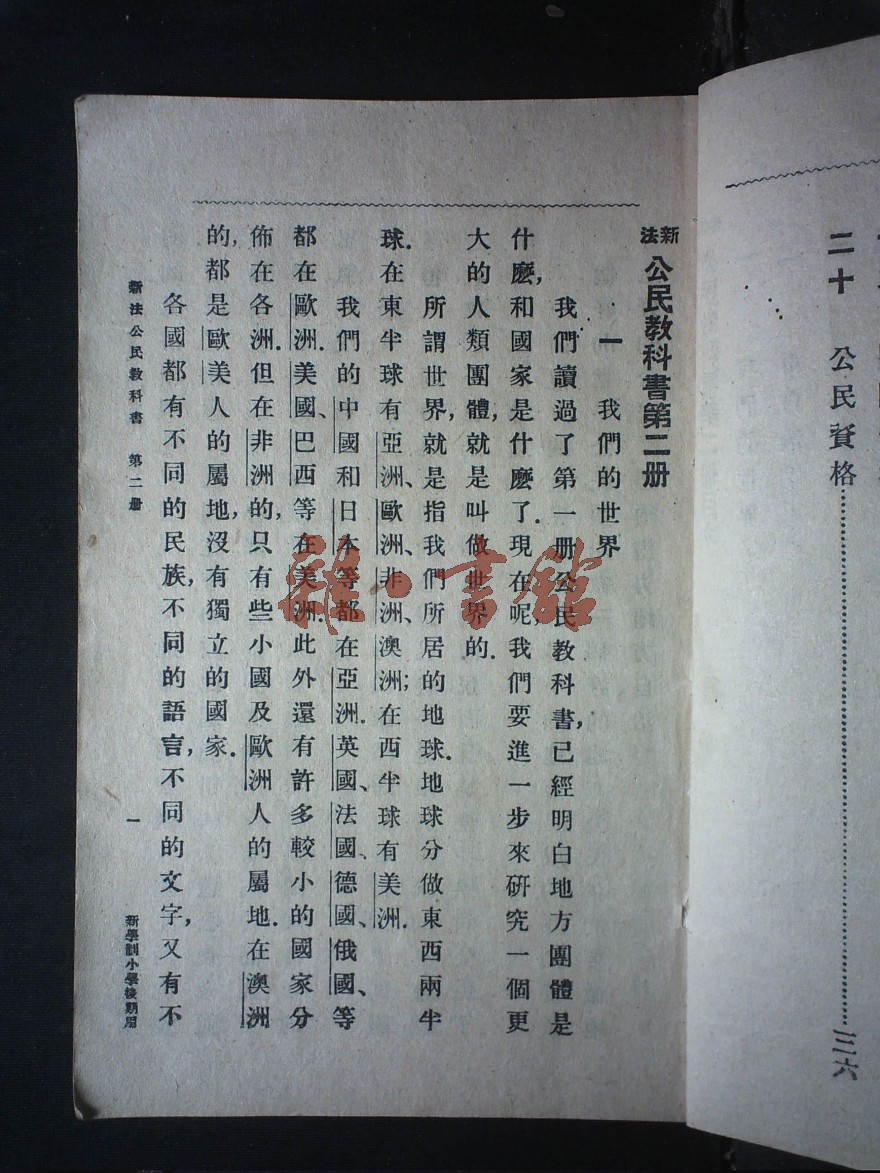 二十 公民資格……三六
新法 公民教科書第二册
一 我們的世界
我們讀過了第一册公民教科書,已經明白地方團體是
什麽,和國家是什麽了.現在呢我們要進一步來研究一個更
大的人類團體,就是叫做世界的.
所謂世界,就是指我們所居的地球.地球分做東西兩半
球.在東半球有亞洲、歐洲、非洲、澳洲;在西半球有美洲.
我們的中國和日本等都在亞洲.英國、法國、德國、俄國、等
都在歐洲.美國、巴西等在美洲.此外還有許多較小的國家分
佈在各洲.但在非洲的,只有些小國及歐洲人的屬地.在澳洲
的,都是歐美人的屬地,沒有獨立的國家.
各國都有不同的民族,不同的語言,不同的文字,又有不
新法公民教科書 第二册
一
新學制小學後期用
雜·書館